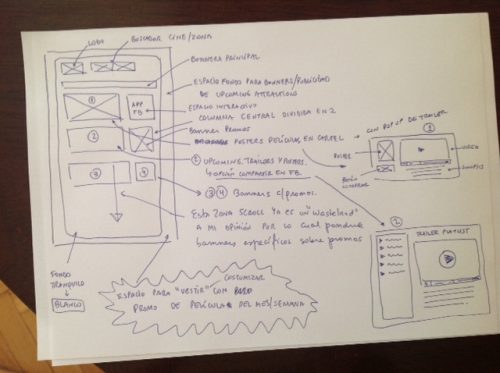 LOGO
BUSCADOR CINE/ZONA
BANNERS PRINCIPAL
ESPACIO FONDO PARA BANNERS/PUBLICIDAD
DE UPCOMING ATTRACTIONS
ESPACIO INTERACTIVO
COLUMNA CENTRAL DIVIDIDA EN 2
Banner Promos
POSTERS PELÍCULAS EN CARTEL
CON POP UP DE TRAILER
1
APP
FB
2
3
4
2 UPCOMING, TRAILERS Y FOTOS.
OPCIÓN COMPARTIR EN FB.
3 4 Banners c/promos.
ESTA ZONA SCROLL YA ES UN "WASTELAND"
A MI OPINIÓN POR LO CUAL PONDRÍA
banners específicos sobre promos
1
POSTER
VIDEO
SINOPSIS
BOTÓN
COMPRAR
2
TRAILER PLAYLIST
FONDO
TRANQUILO
BLANCO
CUSTOMIZAR
ESPACIO PARA "VESTIR" CON
PROMO DE PELÍCULA DEL MES/SEMANA